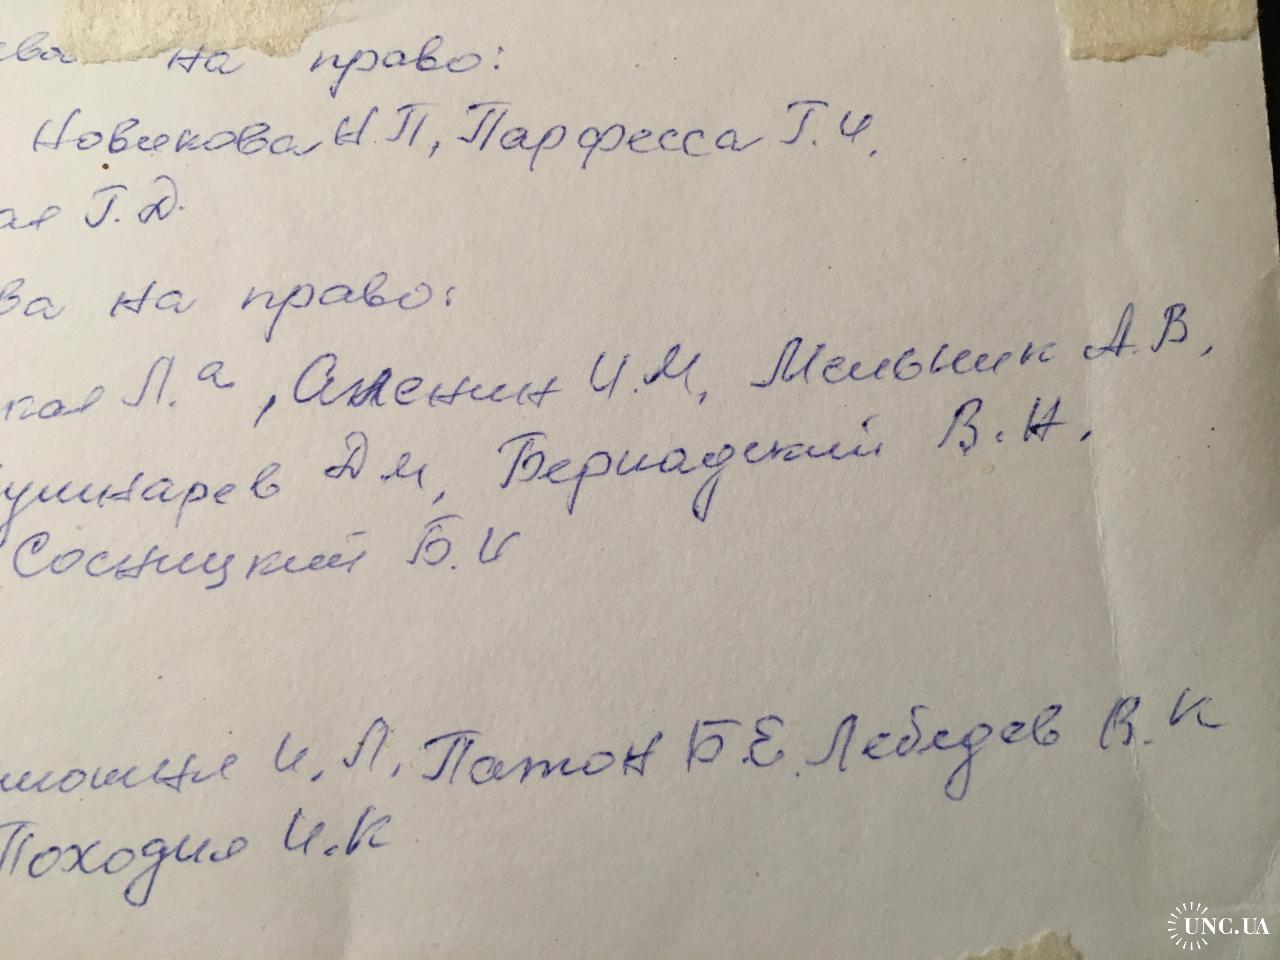 ева на право:
Новикова Н.П, Парфесса Г.И,
ая Г.Д.
ва на право:
кая Л.а, И.М, Мельник А.В,
Кушнарев Дм, Бернадский В.Н.
Сосницкий Б.И
И.Л, Патон Б.Е. Лебедев В.К
Походня И.К
UNC.UA